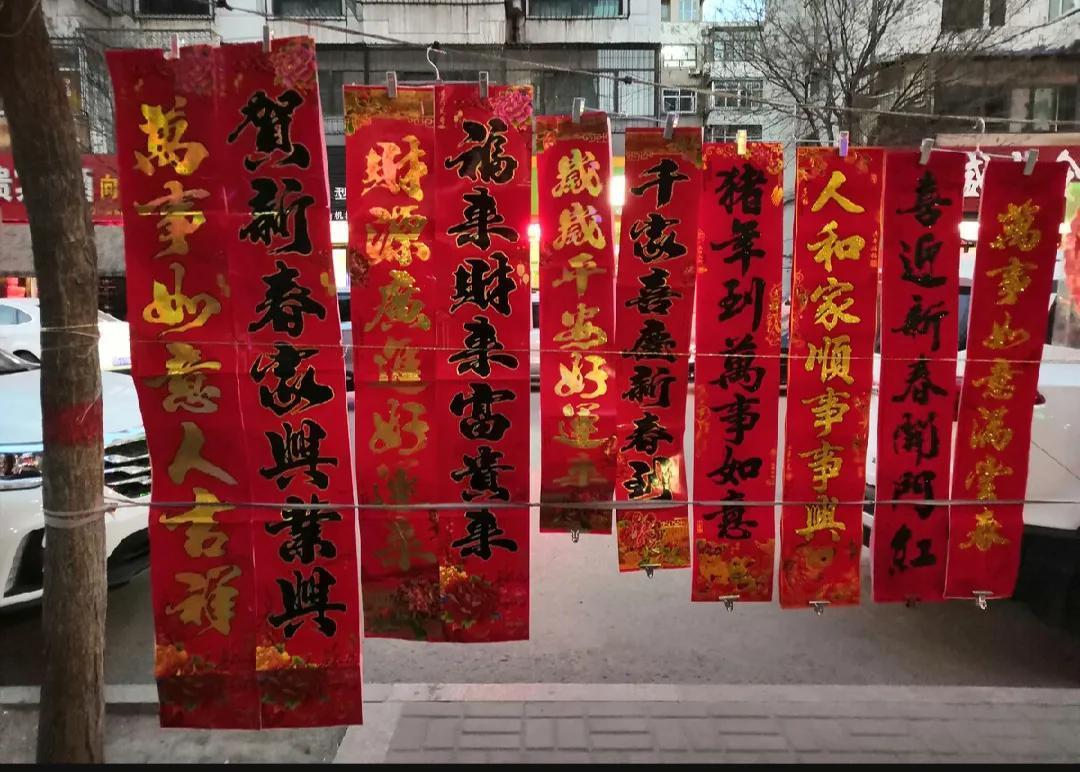 萬事如意人吉祥
賀新春家興業興
財源廣進好運來
福來財來富貴來
歲歲平安好運來
千家喜慶新春到
猪年到萬事如意
人和家順事事興
喜迎新春開門紅
萬事如意滿堂春